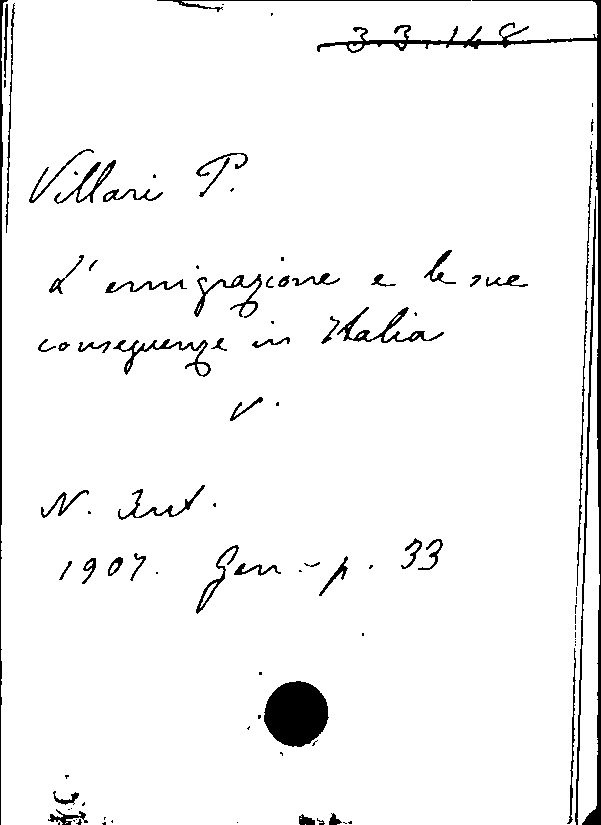 3.3.148
Villari P.
L'emigrazione e le sue
conseguenze in Italia
v.
N. Ant.
1907. Gen - p. 33